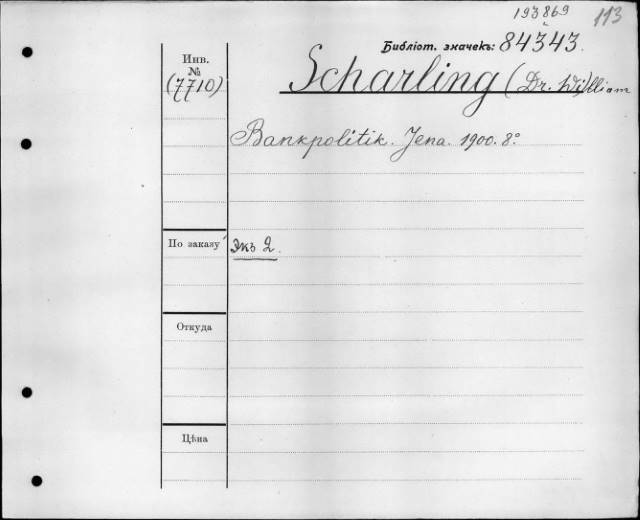 193869
113
Библіот. значекъ: 84343.
Инв.
№
(7710)
Scharling (Dr. William
Bankpolitik. Jena. 1900. 8°
По заказу
Экз 2.
Откуда
Цѣна